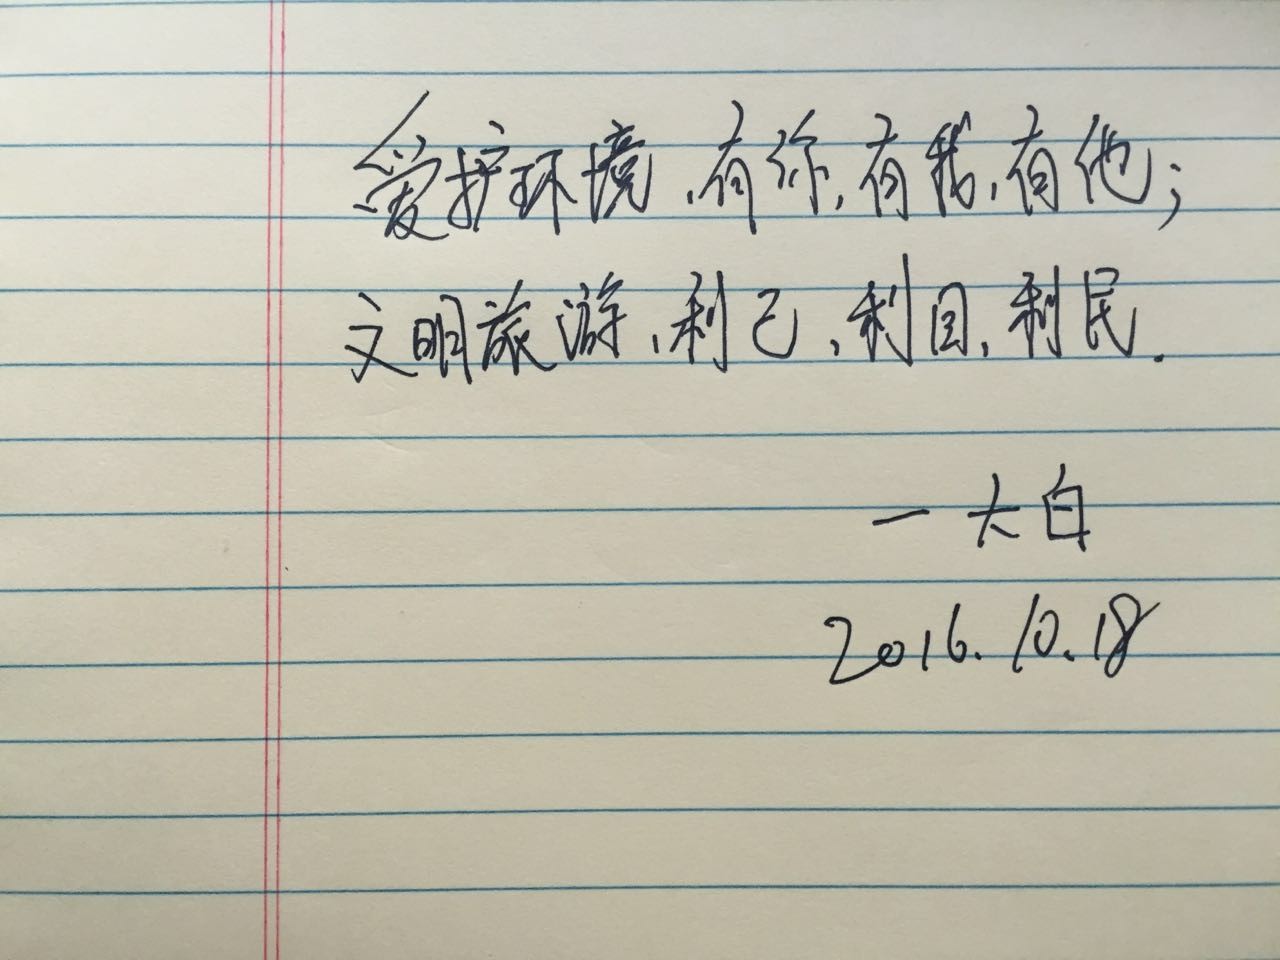 爱护环境,有你,有我,有他;
文明旅游,利己,利国,利民.
一大白
2016.10.18